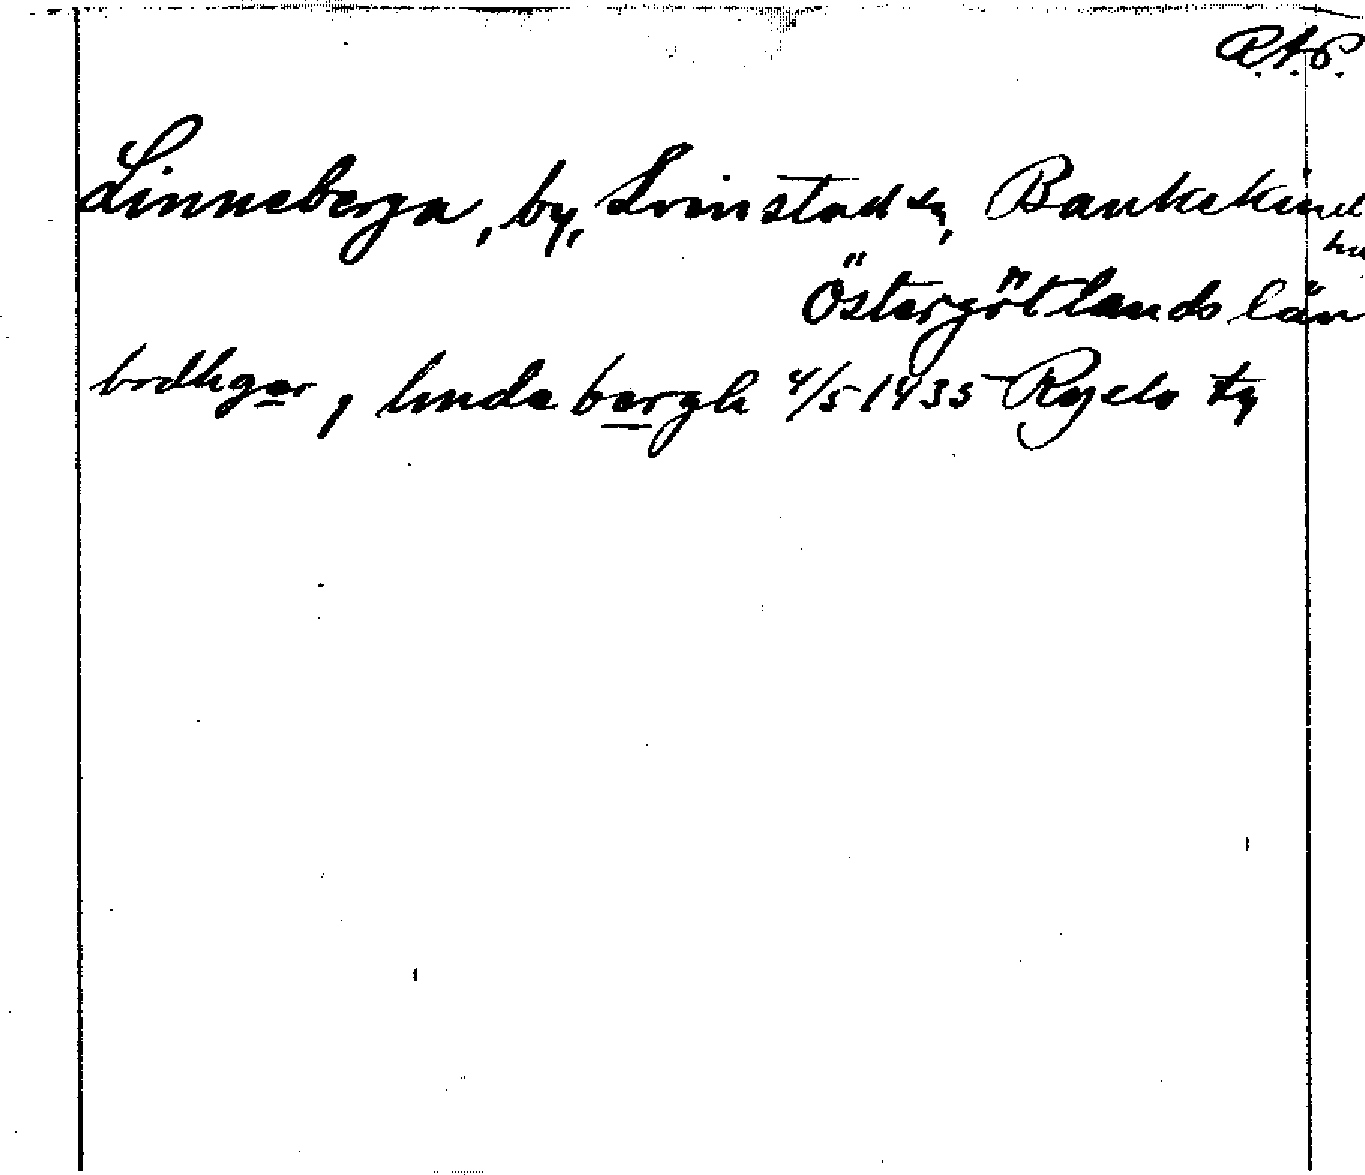 R.A.P.
Linneberga, by, Svinstad sn, Bankekind
hd
Östergötlands län
brdhger, lindebergh 4/5 1435 Ryelo